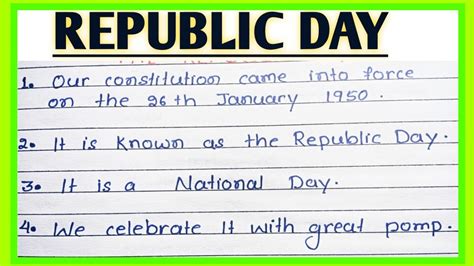 REPUBLIC DAY
1. Our constitution came into force
on the 26th January 1950.
2. It is known as the Republic Day.
3. It is a National Day.
4. We celebrate It with great pomp.